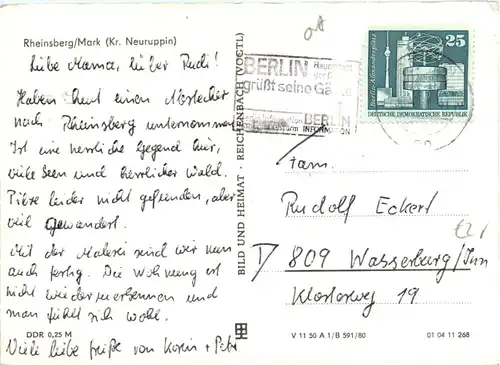 Rheinsberg/Mark (Kr. Neuruppin)
Liebe Mama, lieber Rudi!
Haben heut einen Abstecher
nach Rheinsberg unternommen
Ist eine herrliche Gegend hier,
viele Seen und herrlicher Wald.
Pilze leider nicht gefunden, aber
viel gewandert.
Mit der Malerei sind wir nun
auch fertig. Die Wohnung ist
nicht wiederzuerkennen und
man fühlt sich wohl.
DDR 0,25 M
Viele liebe Grüße von Karin + Peter
BILD UND HEIMAT · REICHENBACH (VOGTL)
BERLIN
grüßt seine Gä
BERLIN
INFORMATION
25
Berlin-Alexanderplatz
DEUTSCHE DEMOKRATISCHE REPUBLIK
Fam.
Rudolf Eckert
D 809 Wasserburg/Inn
Klosterweg 19
V 11 50 A 1/B 591/80
01 04 11 268